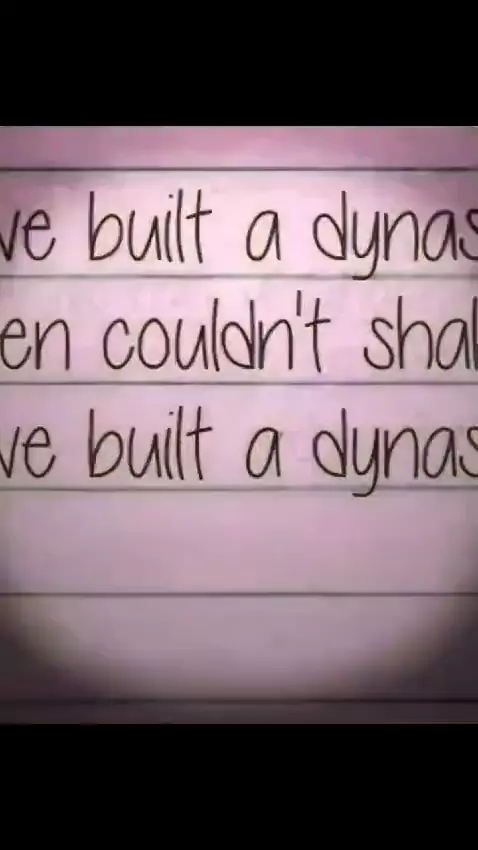 ve built a dynas
en couldn't shak
ve built a dynas